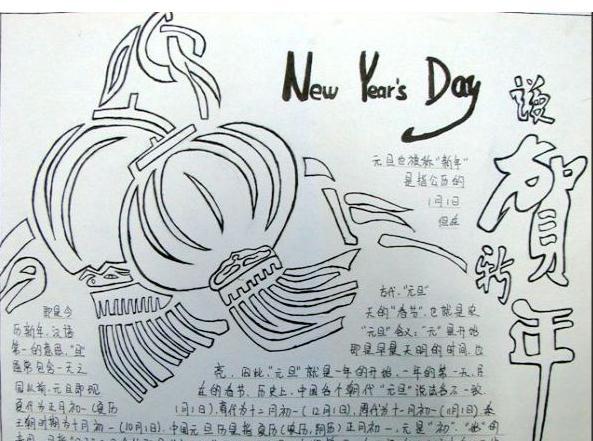 New Year's Day
谨
贺
新
年
元旦也被称"新年"
是指公历的
1月1日
但在
古代,"元旦"
天的"春节",也就是农
"元旦"含义:"元"是开始
即是早晨天明的时间,也
亮,因此"元旦"就是一年的开始,一年的第一天,且
在的春节,历史上,中国各个朝代"元旦"说法各不一致
即是今
历新年,汉语
第一的意思,"旦"
通常包含一天之
因此前,元旦即现
夏代为正月初一(夏历
1月1日),商代为十二月初一(12月1日),周代为十一月初一(11月1日),秦
王朝时期为十月初一(10月1日),中国元旦历是指夏历(农历,阴历)正月初一,元是"初""始"的